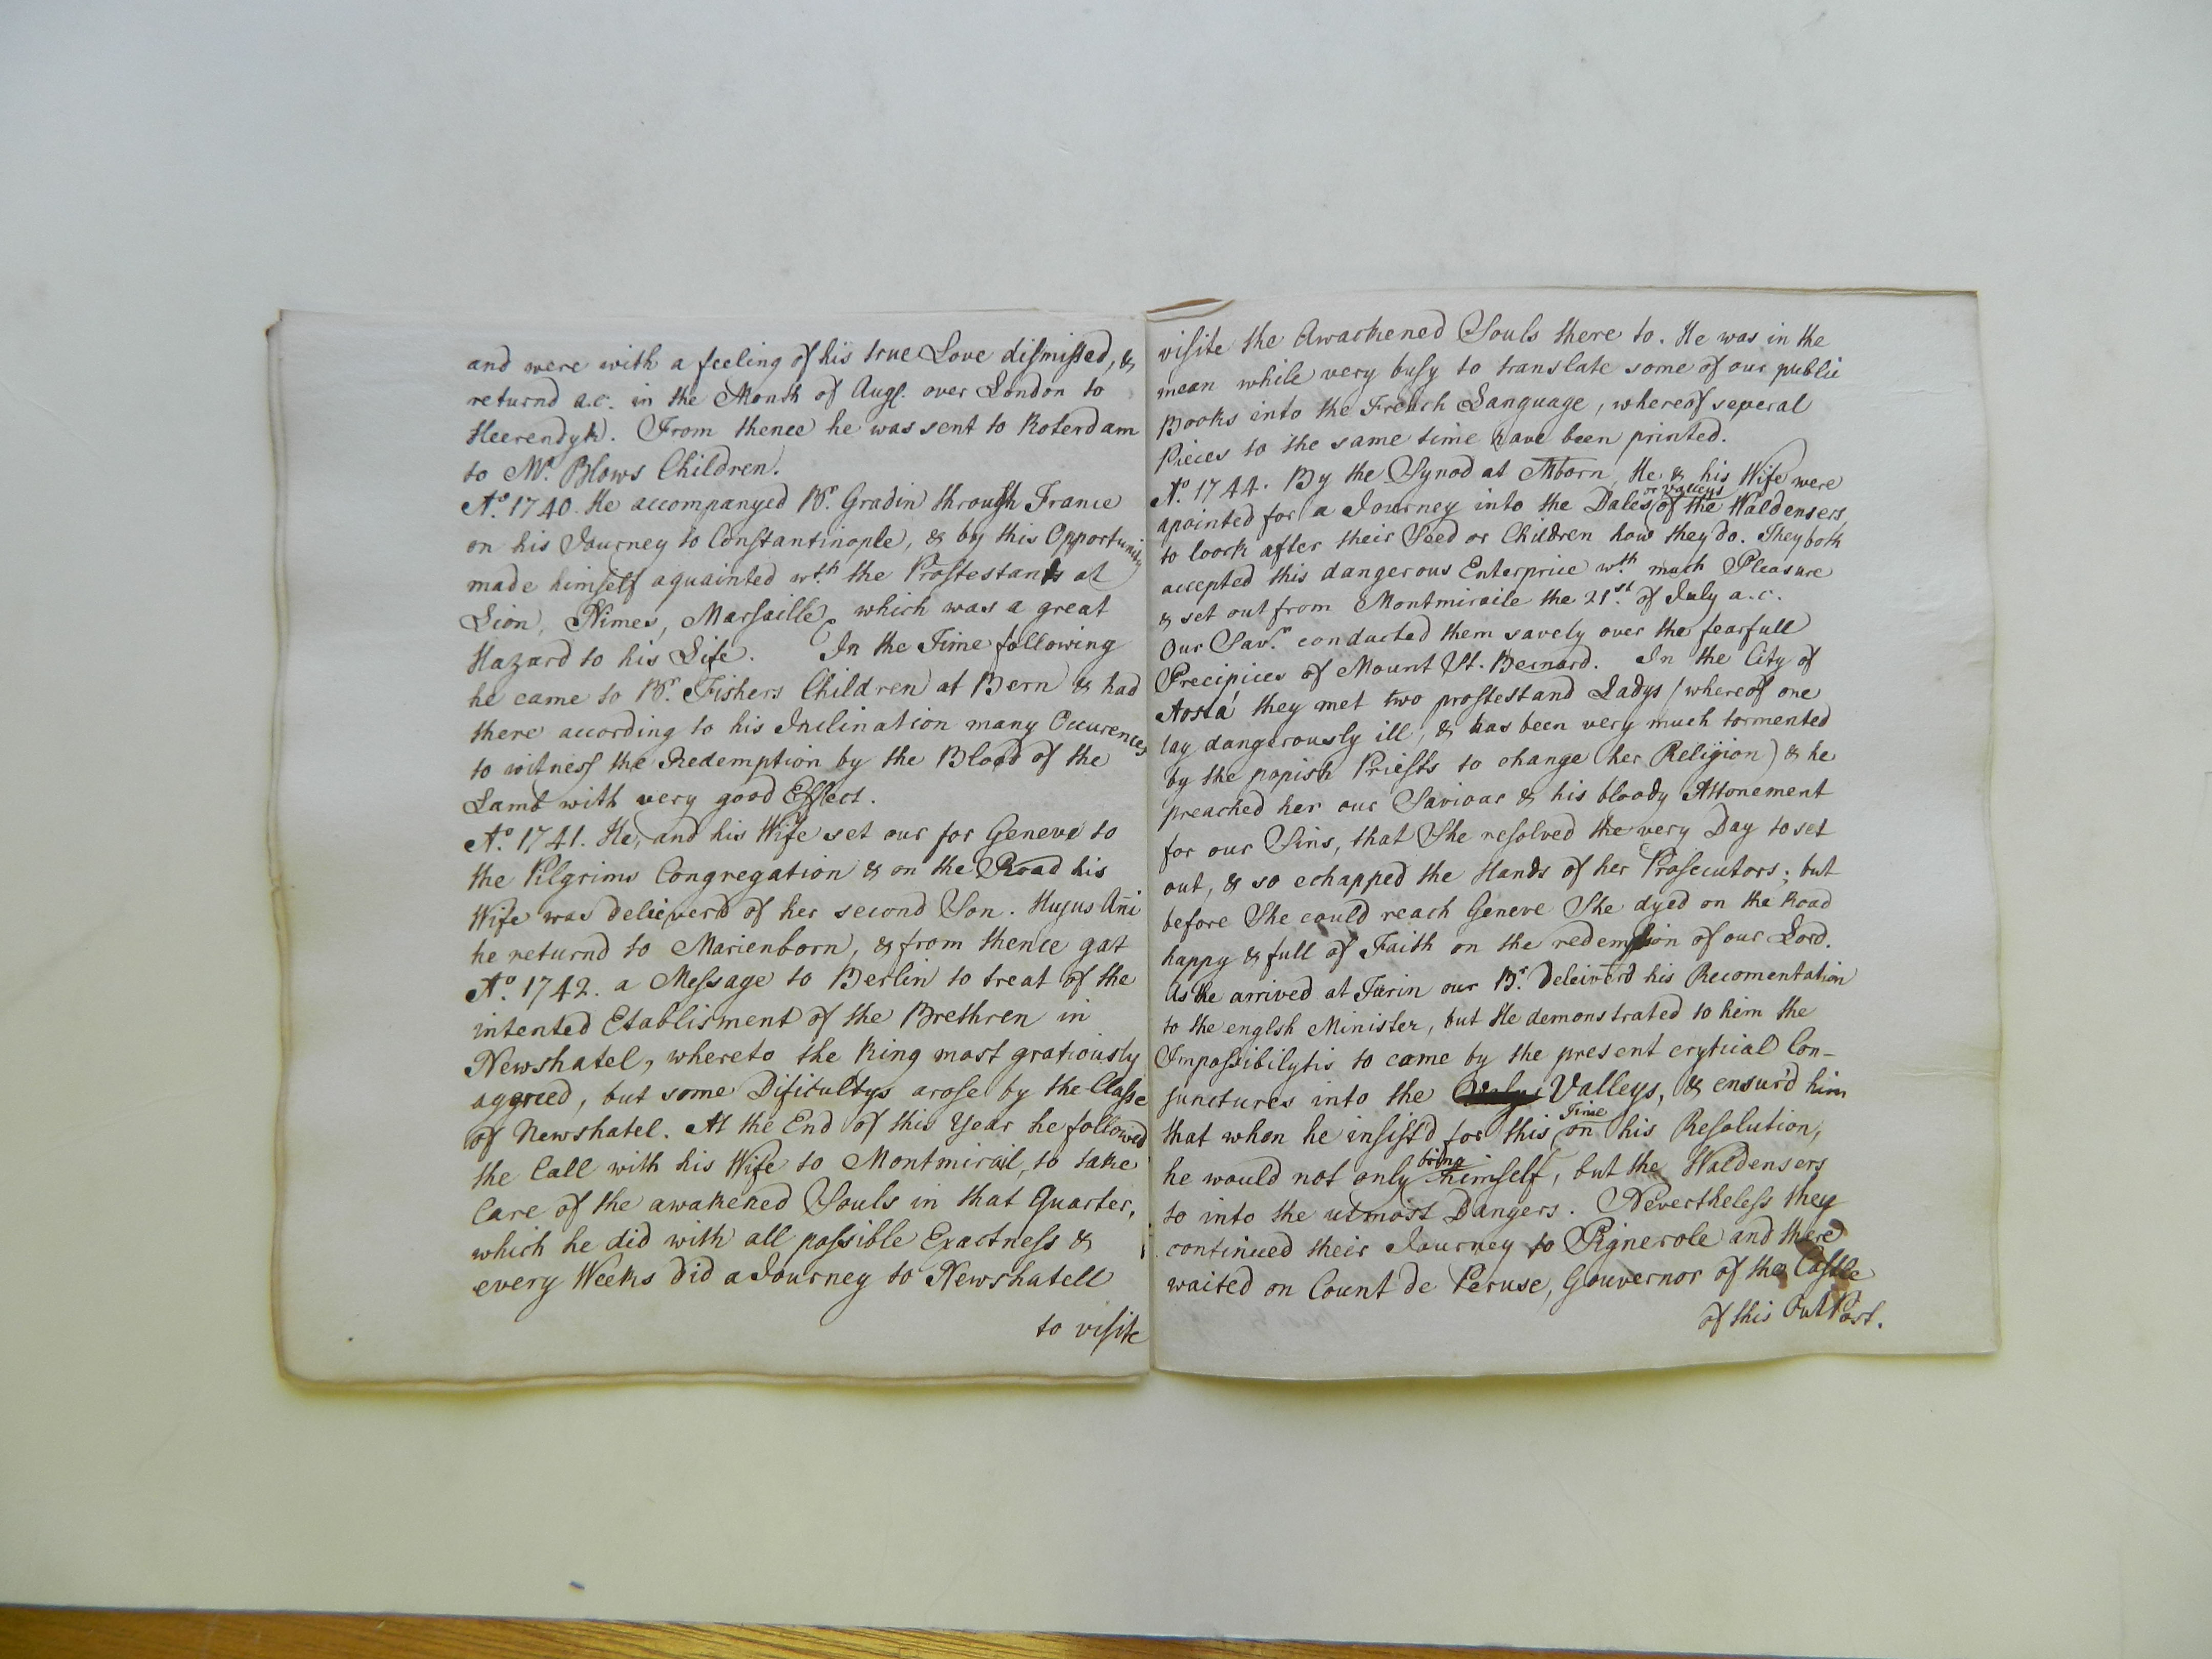 and were with a feeling of his true Love dismissed, &
returnd a.c. in the Month of Augs. over London to
Heerendyk. From thence he was sent to Roterdam
to Mr. Blows Children.
Ao. 1740. He accompanyed Br. Gradin through France
on his Journey to Constantinople, & by this Opportunity
made himself aquainted wth. the Prostestants at
Lion, Nimes, Marsaille, which was a great
Hazard to his Life. In the Time following
he came to Br. Fishers Children at Bern & had
there according to his Inclination many Occurences
to witness the Redemption by the Blood of the
Lamb with very good Effect.
Ao. 1741. He, and his Wife set our for Geneve to
the Pilgrims Congregation & on the Road his
Wife was delieverd of her second Son. Hujus Añi
he returnd to Marienborn, & from thence gat
Ao. 1742. a Message to Berlin to treat of the
intented Etablisment of the Brethren in
Newshatel, whereto the King most gratiously
aggreed, but some Dificultys arose by the Classe
of Newshatel. At the End of this Year he followed
the Call with his Wife to Montmirail, to take
Care of the awakened Souls in that Quarter,
which he did with all possible Exactness &
every Weeks did a Journey to Newshatell
to visite
visite the Awackened Souls there to. He was in the
mean while very busy to translate some of our public
Books into the French Language, whereof several
Pieces to the same time have been printed.
Ao. 1744. By the Synod at Mborn, He & his Wife were
apointed for a Journey into the Dales or Valleys of the Waldensers,
to loock after their Seed or Children how they do. They both
accepted this dangerous Enterprice wth. much Pleasure
& set out from Montmiraile the 21st. of July a.c.
Our Savr. conducted them savely over the fearfull
Precipices of Mount St. Bernard. In the City of
Aosta they met two prostestand Ladys (whereof one
lay dangerously ill, & has been very much tormented
by the popish Priests to change her Religion) & he
preached her our Saviour & his bloody Attonement
for our Sins, that She resolved the very Day to set
out, & so echapped the Hands of her Prosecutors; but
before She could reach Geneve She dyed on the Road
happy & full of Faith on the redemption of our Lord.
As he arrived at Turin our Br. deleiverd his Recomentation
to the englsh Minister, but He demonstrated to him the
Impossibilytis to come by the present crytical Con-
junctures into the Valleys, & ensur'd him
that when he insist'd for this Time on his Resolution,
he would not only bring himself, but the Waldensers
to into the utmost Dangers. Nevertheless they
continued their Journey to Pignerole and there
waited on Count de Peruse, Gouvernor of the Castle
of this OutPost.